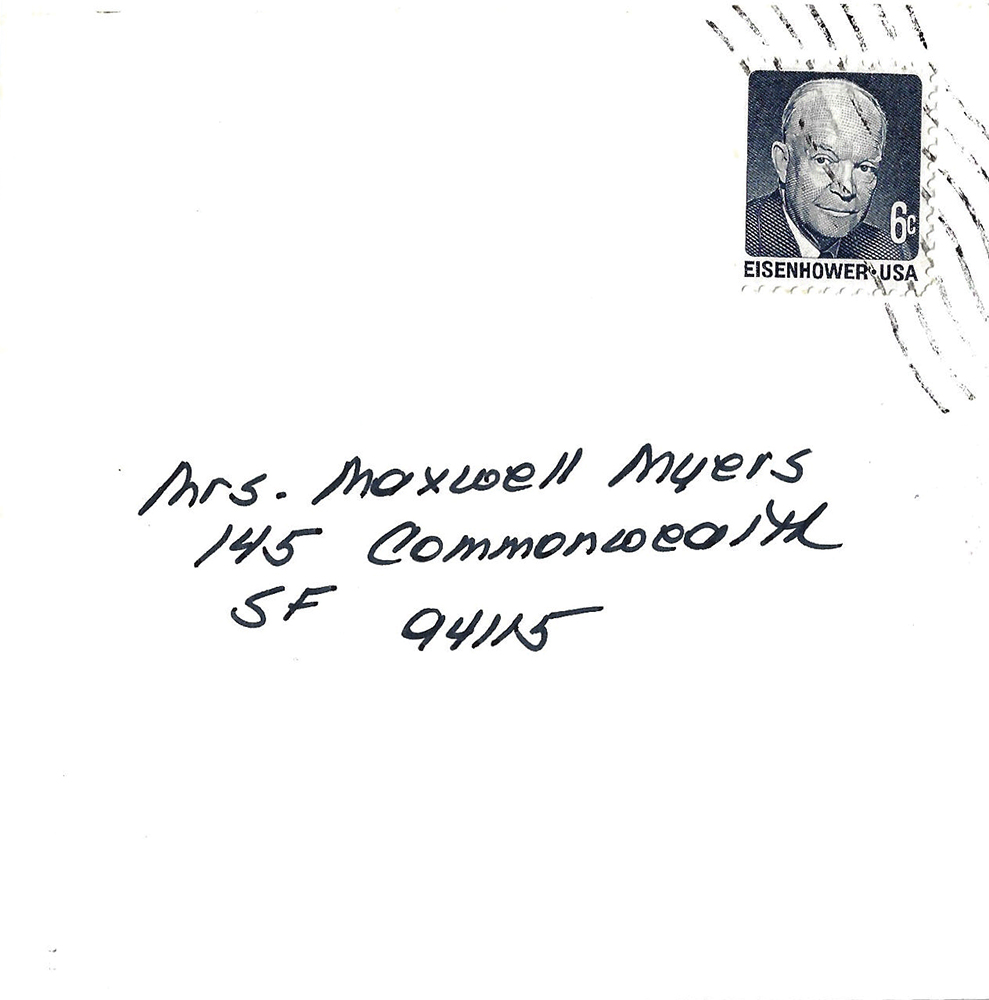 6c
EISENHOWER·USA
Mrs. Maxwell Myers
145 Commonwealth
SF 94115